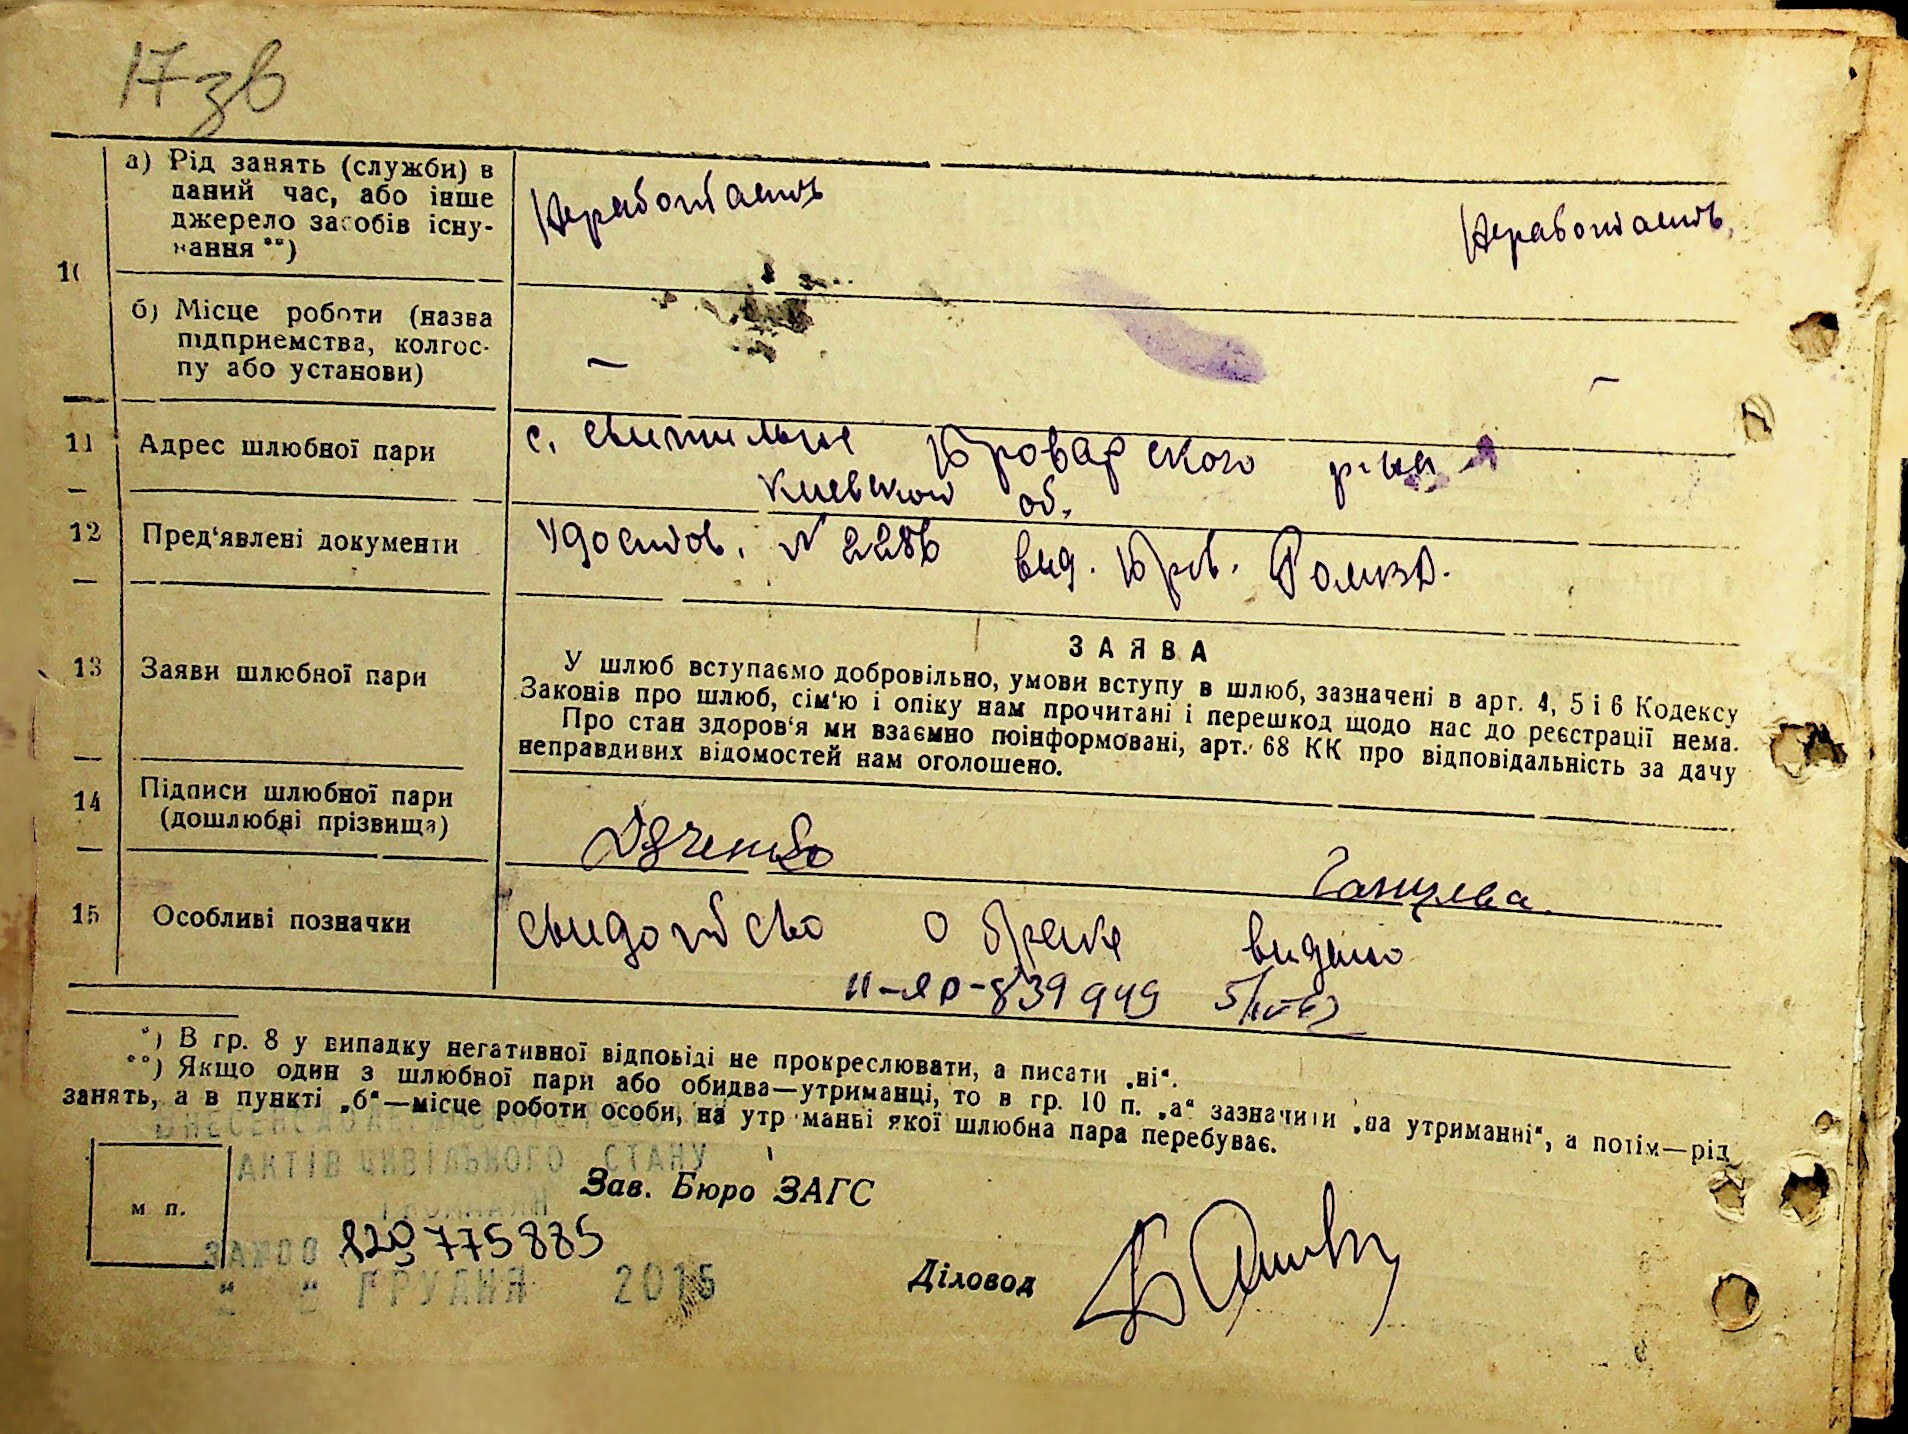 17 зв
а) Рід занять (служби) в
даний час, або інше
джерело засобів існу-
вання **)
Неработает
Неработает
10
б) Місце роботи (назва
підприємства, колгос-
пу або установи)
—
—
11 Адрес шлюбної пари
с. Светильне Броварского р-на
Киевской об.
12 Пред‘явлені документи
Удостов. № 2286 вид. Бров.
ЗАЯВА
13 Заяви шлюбної пари
У шлюб вступаємо добровільно, умови вступу в шлюб, зазначені в арт. 4, 5 і 6 Кодексу
Законів про шлюб, сім‘ю і опіку нам прочитані і перешкод щодо нас до реєстрації нема.
Про стан здоров‘я ми взаємно поінформовані, арт. 68 КК про відповідальність за дачу
неправдивих відомостей нам оголошено.
14 Підписи шлюбної пари
(дошлюбні прізвища)
Дяченко
15 Особливі позначки
свидотство о браке видано
II-ЯР-839949
*) В гр. 8 у випадку негативної відповіді не прокреслювати, а писати „ні“.
**) Якщо один з шлюбної пари або обидва—утриманці, то в гр. 10 п. „а“ зазначити „на утриманні“, а потім—рід
занять, а в пункті „б“—місце роботи особи, на утриманні якої шлюбна пара перебуває.
АКТІВ ЦИВІЛЬНОГО СТАНУ
ГРОМАДЯН
м п.
Зав. Бюро ЗАГС
829775885
" " ГРУДНЯ 2015
Діловод